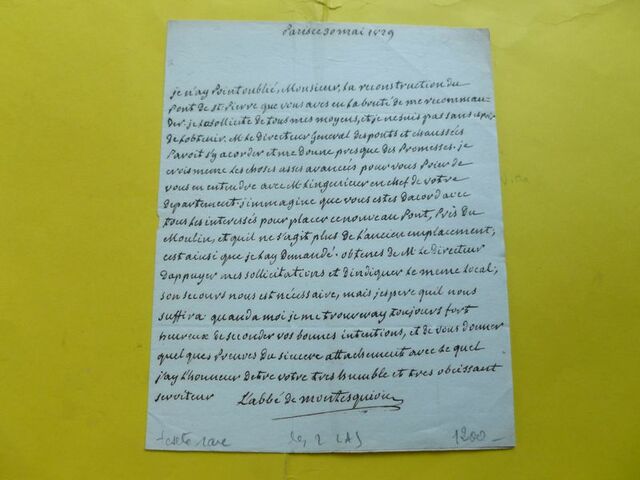 Paris ce 30 mai 1829
je n'ay Point oublié, Monsieur, La reconstruction du
Pont de st. Pierre que vous aves eu La bonté de me recomman-
der. je La sollicite de tous mes moyens, et je ne suis pas sans espoir
de L'obtenir. M. Le Directeur General des ponts et chaussées
Paroit s'y acorder et me donne presque des Promesses. je
crois meme Les choses asses avancées pour vous Prier de
vous en entendre avec M. L'ingenieur en chef de votre
departement. j'immagine que vous estes Dacord avec
tous Les interessés pour placer ce nouveau Pont, Près du
Moulin, et qu'il ne s'agit plus de L'ancien emplacement;
c'est ainsi que je L'ay Demandé. obtenes de M. Le Directeur
D'appuyer mes sollicitations et d'indiquer Le meme Local;
son secours nous est nécessaire, mais j'espere qu'il nous
suffira. quand a moi je me trouveray toujours fort
heureux de seconder vos bonnes intentions, et de vous donner
quelques Preuves du sincere attachement avec Le quel
j'ay L'honneur d'etre votre tres humble et tres obeissant
serviteur L'abbé de montesquiou
texte rare Les 2 LAS 1200 —